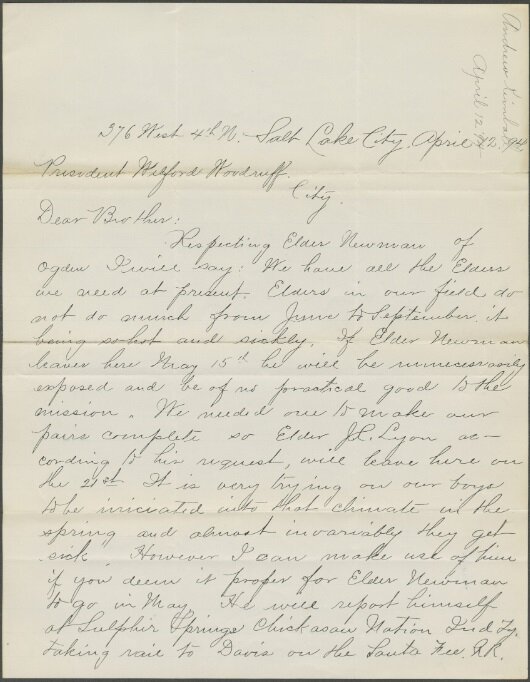 Andrew Kimball
April 12, 94
376 West 4th N. Salt Lake City, April 12, 94
President Wilford Woodruff.
City.
Dear Brother:
Respecting Elder Newman of
Ogden I will say: We have all the Elders
we need at present. Elders in our field do
not do much from June to September, it
being so hot and sickly. If Elder Newman
leaves here May 15th he will be unnecessarily
exposed and be of no practical good to the
mission. We needed one to make our
pairs complete so Elder J.L. Lyon ac-
cording to his request, will leave here on
the 21st. It is very trying on our boys
to be iniciated into that climate in the
spring and almost invariably they get
sick. However I can make use of him
if you deem it proper for Elder Newman
to go in May. He will report himself
at Sulphir Springs Chickasaw Nation Ind Ty.
taking rail to Davis on the Santa Fee. RR.